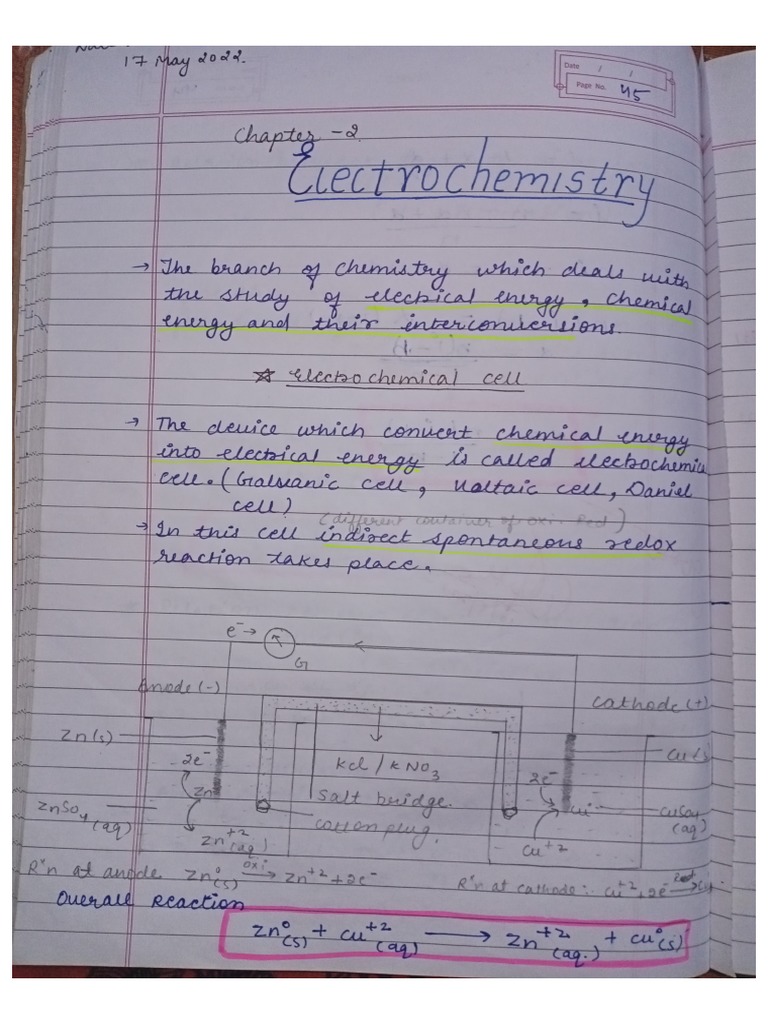 17 May 2022.
Date / /
Page No. 45
Chapter -2
Electrochemistry
→ The branch of chemistry which deals with
the study of electrical energy, chemical
energy and their interconversions.
☆ Electrochemical cell
→ The device which convert chemical energy
into electrical energy is called electrochemic
cell. (Galvanic cell, Voltaic cell, Daniel
cell)
(different container of oxi. Red)
→ In this cell indirect spontaneous redox
reaction takes place.
e⁻ →
G
Anode (-)
Cathode (+)
Zn(s)
Cu(s)
2e⁻
kcl / KNO₃
2e⁻
Zn
Salt bridge.
Cu
ZnSO₄ (aq)
CuSO₄ (aq)
Zn⁺² (aq)
cotton plug.
Cu⁺²
Rˣn at anode Zn°(s) oxi → Zn⁺² + 2e⁻
Rˣn at cathode:- Cu⁺², 2e⁻ Red → Cu
Overall Reaction
Zn°(s) + Cu⁺²(aq) → Zn⁺²(aq.) + Cu°(s)